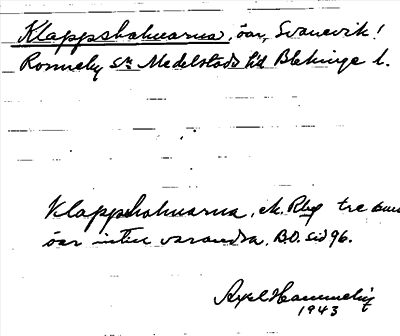 Klappsholmarna, öar, Svanevik!
Ronneby sn Medelstads hd Blekinge l.
Klappsholmarna, ek. Rbg tre små
öar intill varandra. B.O. sid 96.
Axel Hammelin
1943